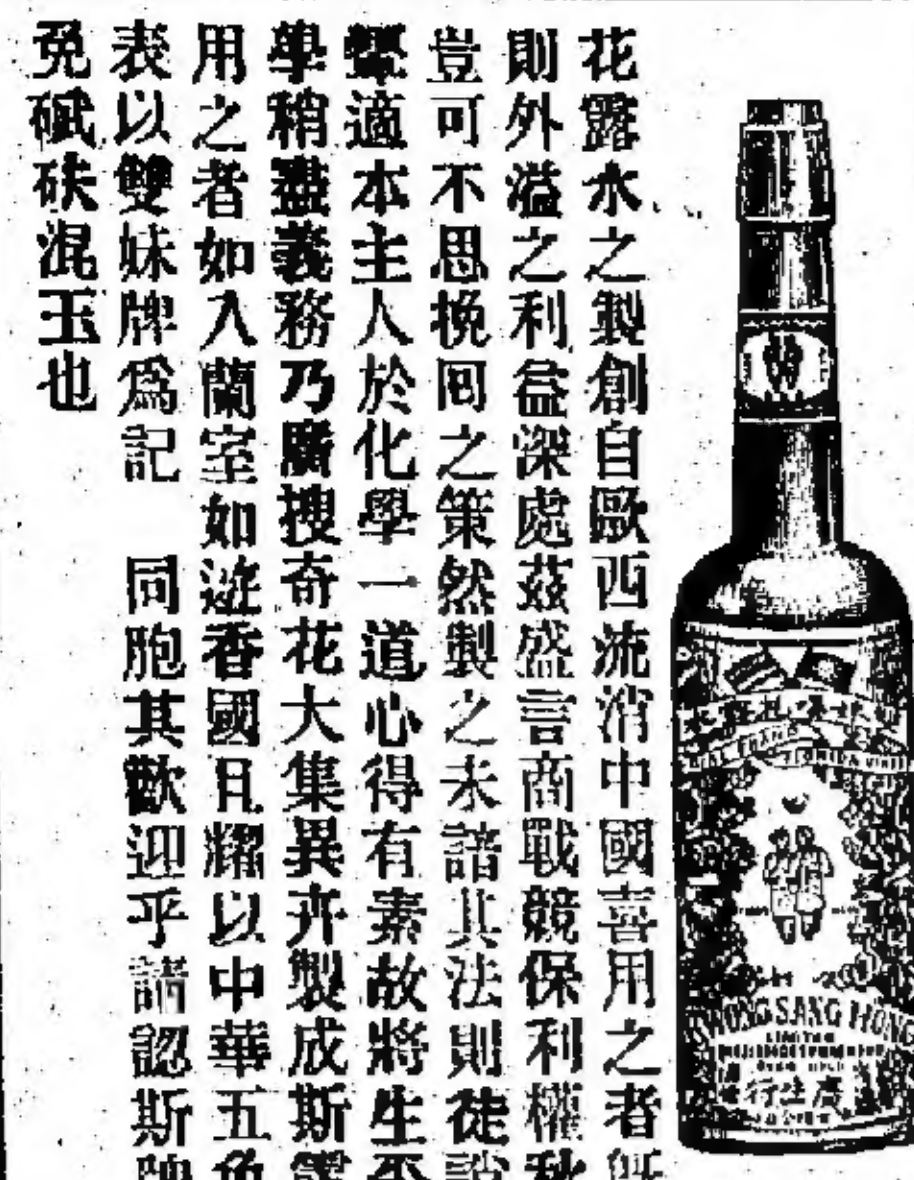 花露水之製創自歐西流消中國喜用之者
則外溢之利益深處茲盛言商戰競保利權
豈可不思挽囘之策然製之未諳其法則徒
顰適本主人於化學一道心得有素故將生平
學稍盡義務乃廣搜奇花大集異卉製成斯
用之者如入蘭室如遊香國且耀以中華五色
表以雙妹牌爲記 同胞其歡迎乎請認斯牌
免碔砆混玉也
KWONG SANG HONG
LIMITED
廣生行